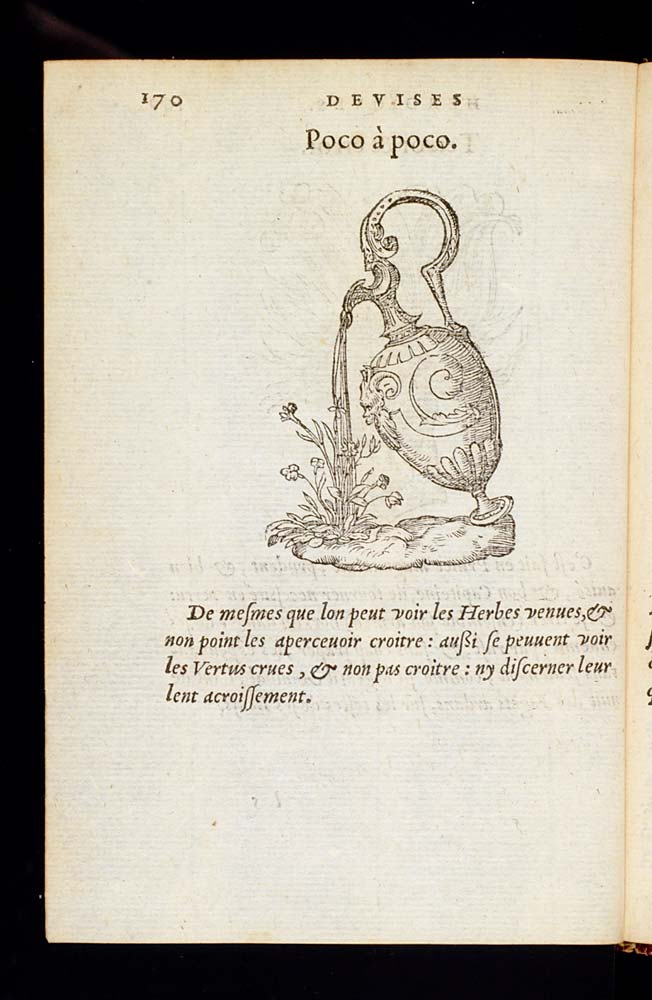 170 DEVISES
Poco à poco.
De meſmes que lon peut voir les Herbes venues, &
non point les aperceuoir croitre : außi ſe peuuent voir
les Vertus crues , & non pas croitre : ny diſcerner leur
lent acroiſſement.